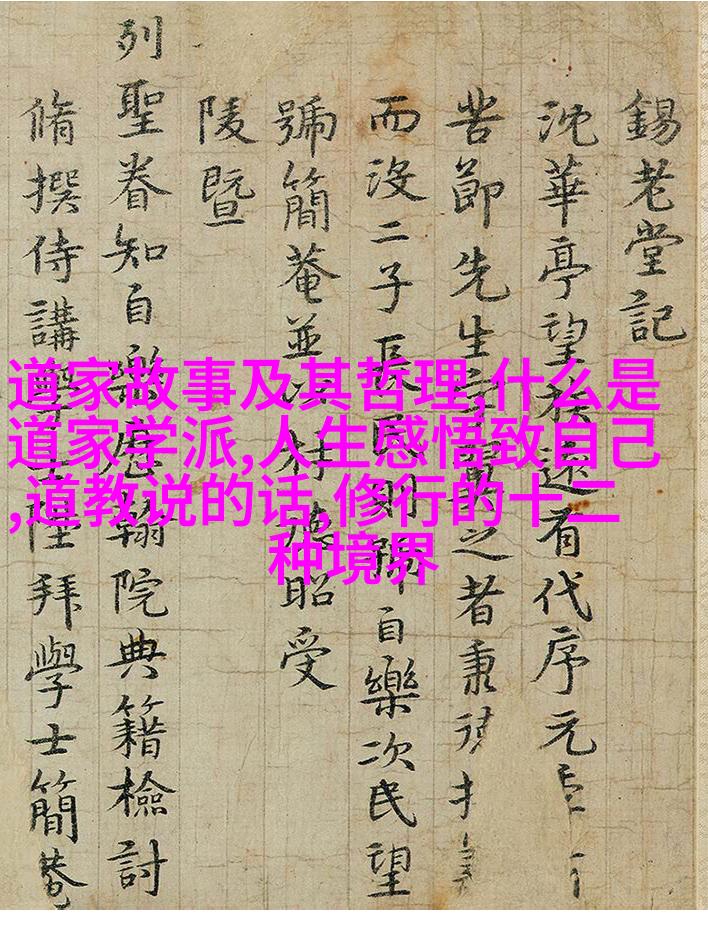 錫老堂記
沈華亭望族遠有代序元
苦節先生之者秉
而沒二子長民則自樂次民望
號簡菴並以材昭受
陵暨
列聖眷知自樂歷翰院典籍檢討
脩撰侍講學士陞拜學士簡菴
道家故事及其哲理,什么是
道家学派,人生感悟致自己
,道教说的话,修行的十二
种境界